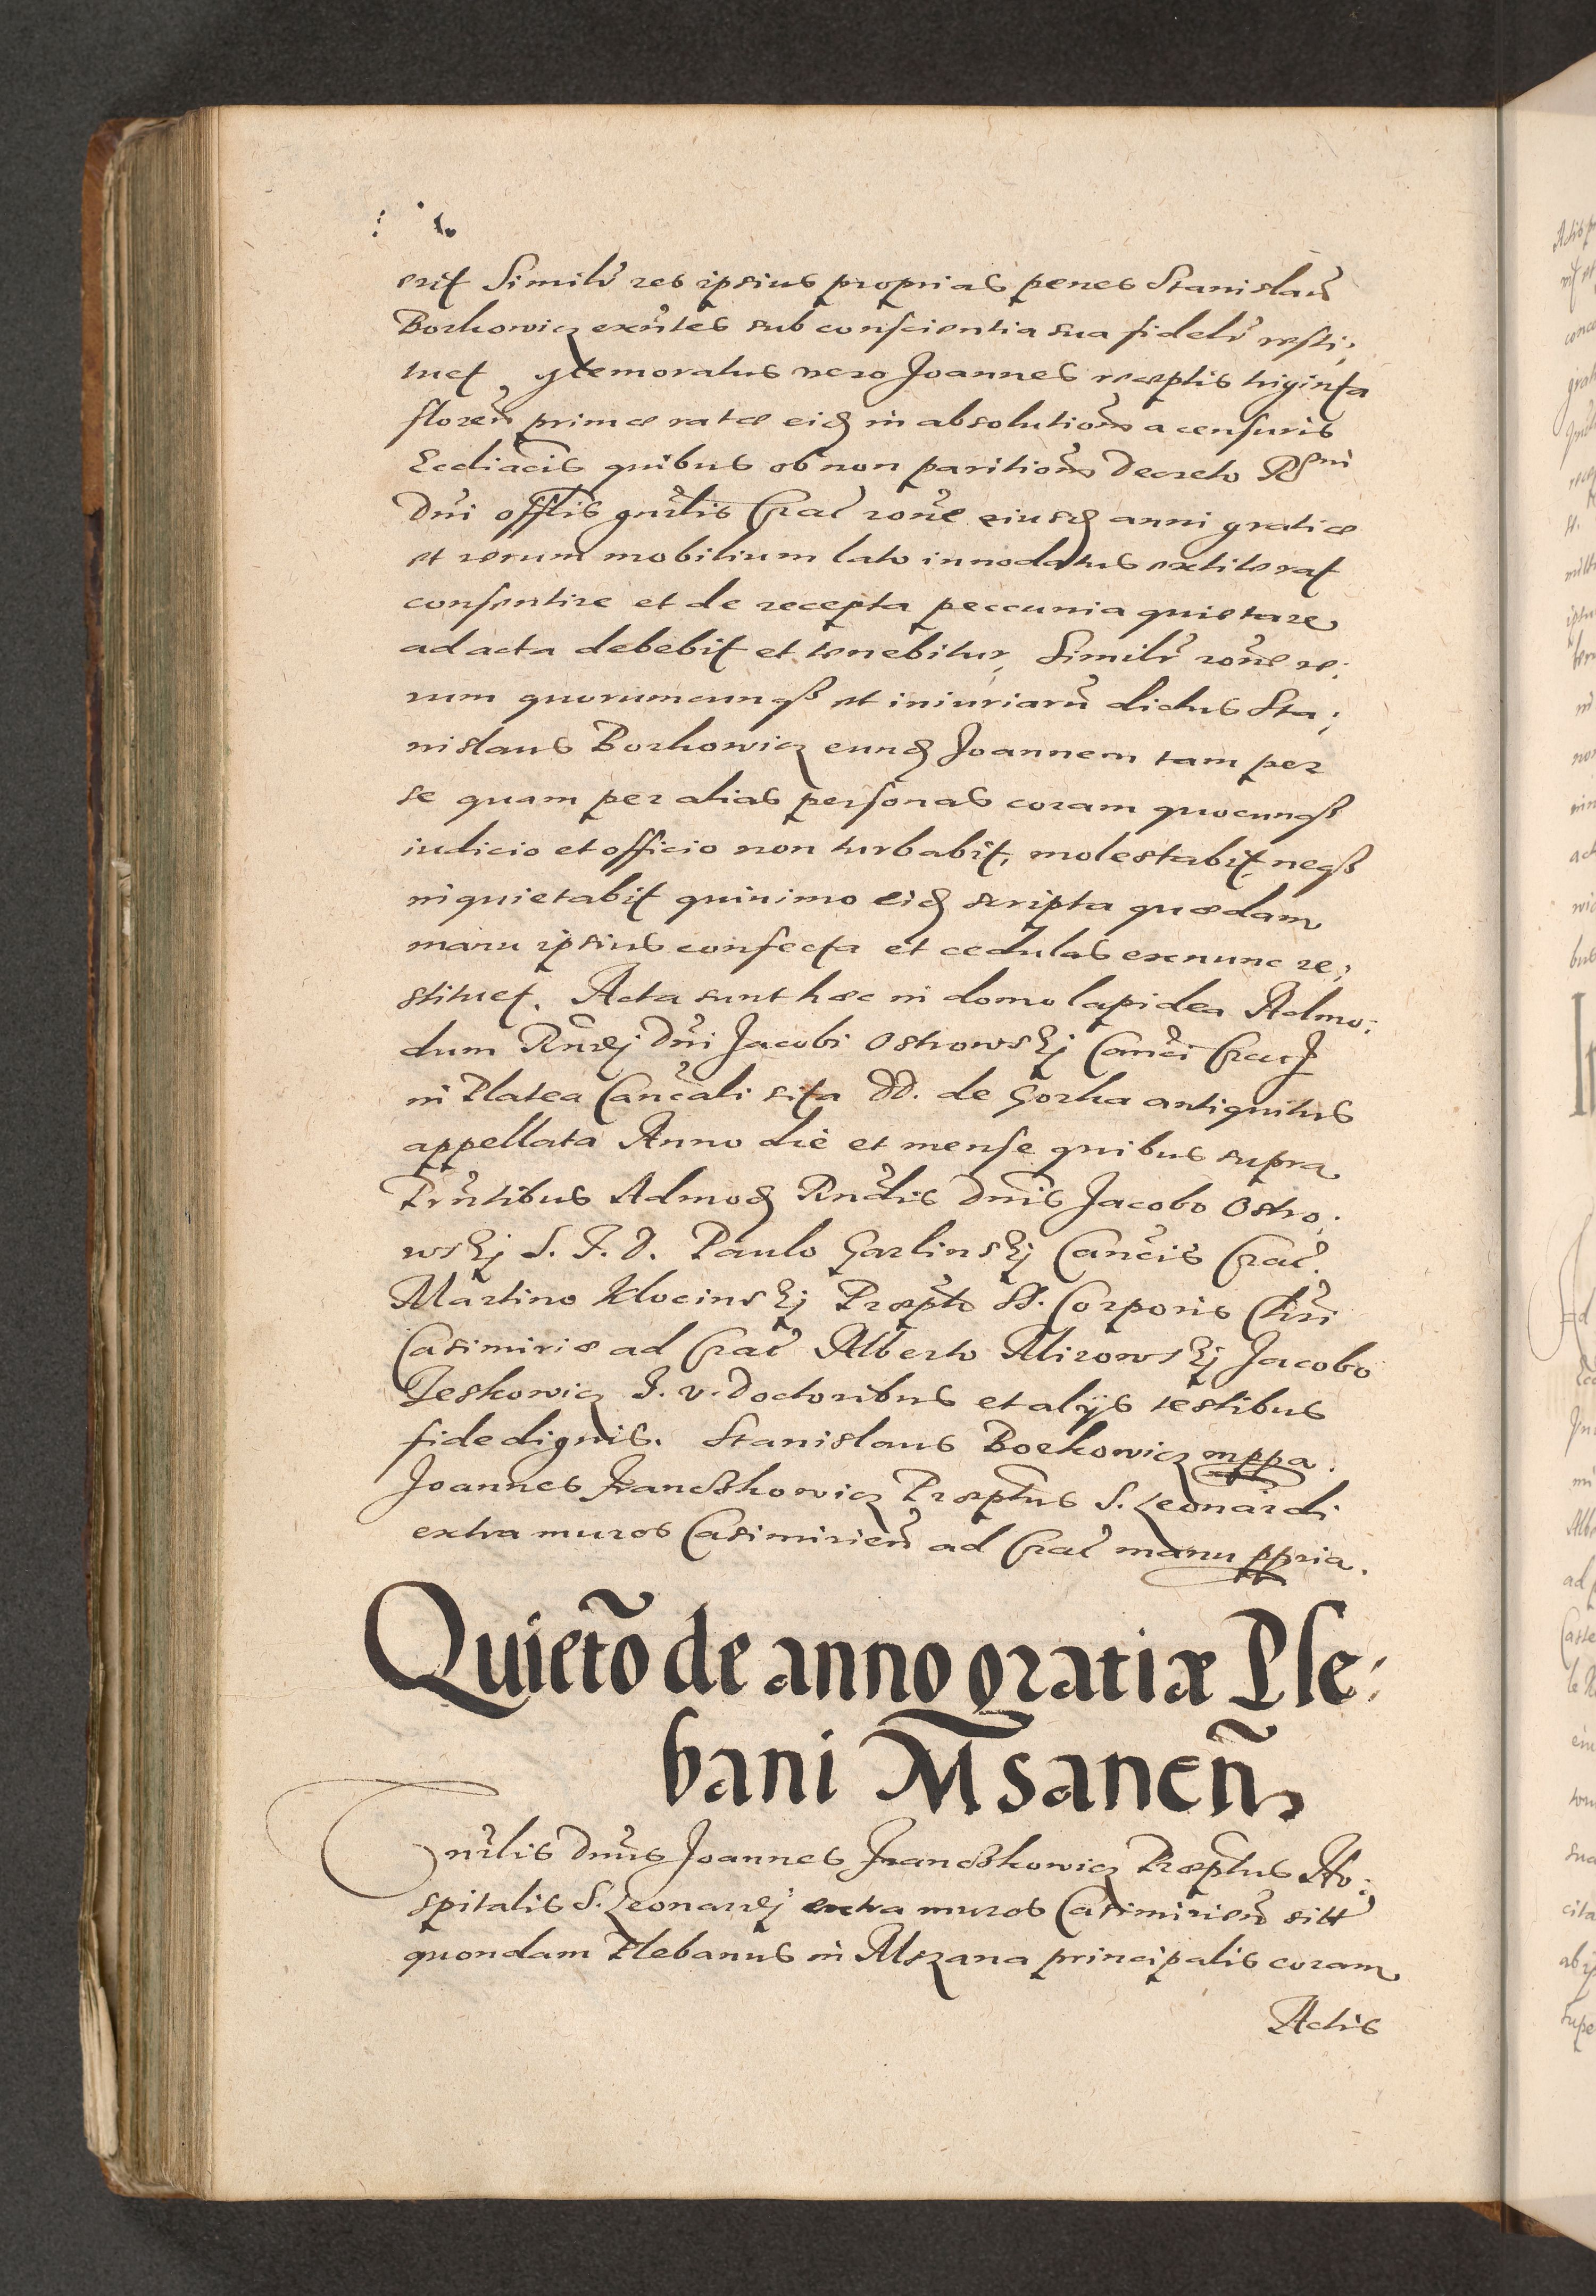 erit Similr̃ res ipsius proprias penes Stanislaũ
Borkowicz exñtes sub conscientia sua fidelr̃ resti;
tuet Memoratus vero Joannes receptis triginta
floreñ primæ ratæ eid in absolutioñe a censuris
Eccliacis quibus ob non paritioñe Decreto Rdmi
Dñi offlis gñrlis Crac̃ roñe eiusd anni gratiæ
et rerum mobilium lato innodatus extiterat
consentire et de recepta peccunia quietare
ad acta debebit et tenebitur, Simlr̃ roñe re:
rum quorumcunqȝ et iniuriarũ dictus Sta;
nislaus Borkowicz eund Joannem tam per
se quam per alias personas coram quocunqȝ
iudicio et officio non turbabit, molestabit neqȝ
inquietabit quinimo eid scripta quædam
manu ipsius confecta et cedulas exnunc re;
stituet. Acta sunt hæc in domo lapidea Admo:
dum Rñdj Dñi Jacobi Ostrowskj Cañci Crac
in Platea Cañcali sita DD. de Gorka antiquitus
appellata Anno die et mense quibus supra
Prñtibus Admod Rndis Dnis Jacobo Ostro:
wskj S. T. D. Paulo Garlinskj Cañcis Crac̃.
Martino Klocinskj Præpto SS. Corporis Chri
Casimiriæ ad Crac̃ Alberto Mirowskj Jacobo
Jeskowicz J. V. Doctoribus et alijs testibus
fidedignis. Stanislaus Boekowicz mppa.
Joannes Franckowicz Præptus S. Leonardi
extra muros Casimirieñ ad Crac̃ manu ppria.
Quietõ de anno gratiæ Ple:
bani Msaneñ
Gñrlis Dnus Joannes Franckowicz Præptus Ho:
spitalis S. Leonardj extra muros Casimirieñ siti
quondam Plebanus in Mszana principalis coram
Actis